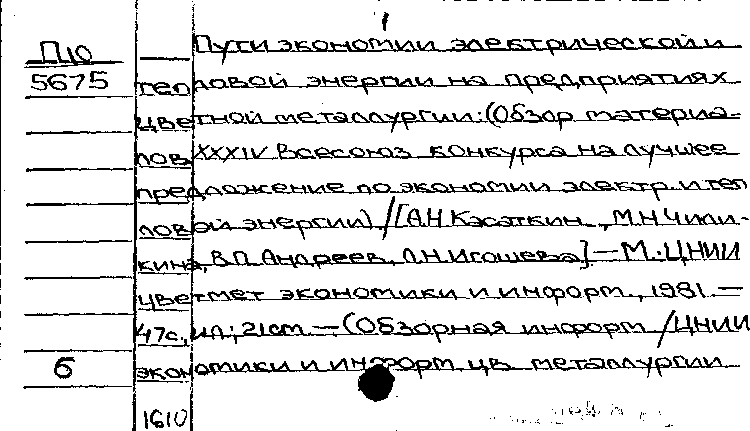 П10
5675
Пути экономии электрической и
тепловой энергии на предприятиях
цветной металлургии: (Обзор материа-
лов XXXIV Всесоюз. конкурса на лучшее
предложение по экономии электр. и теп
ловой энергии) / [А.Н. Касаткин, М.Н. Чили-
кина, В.П. Андреев, Л.Н. Игошева] — М.: ЦНИИ
цветмет экономики и информ., 1981. —
47с., ил.; 21см. — (Обзорная информ / ЦНИИ
экономики и информ. цв. металлургии
б
1610